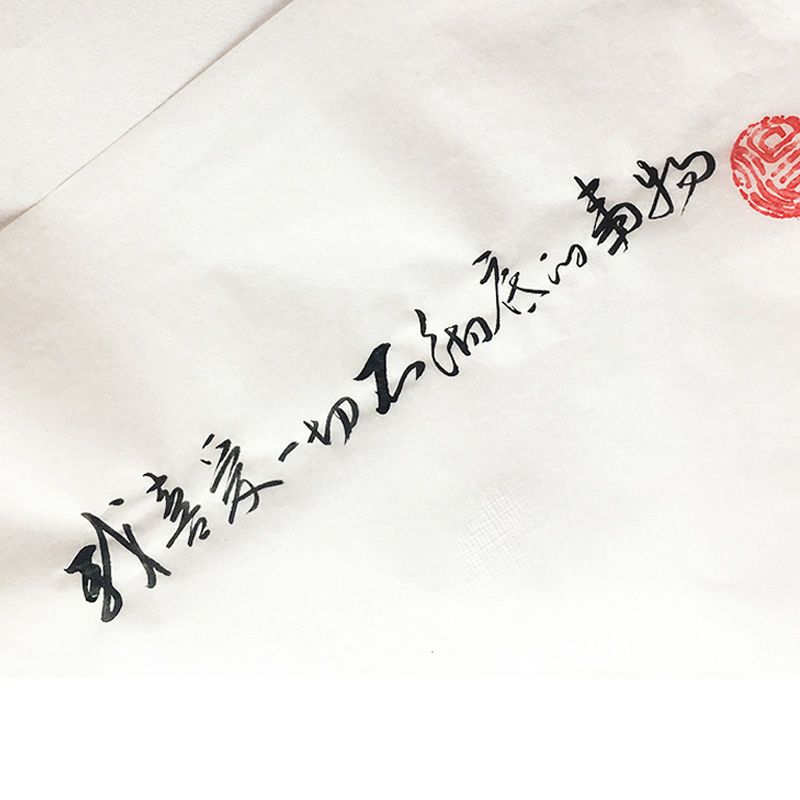 我喜爱一切不彻底的事物